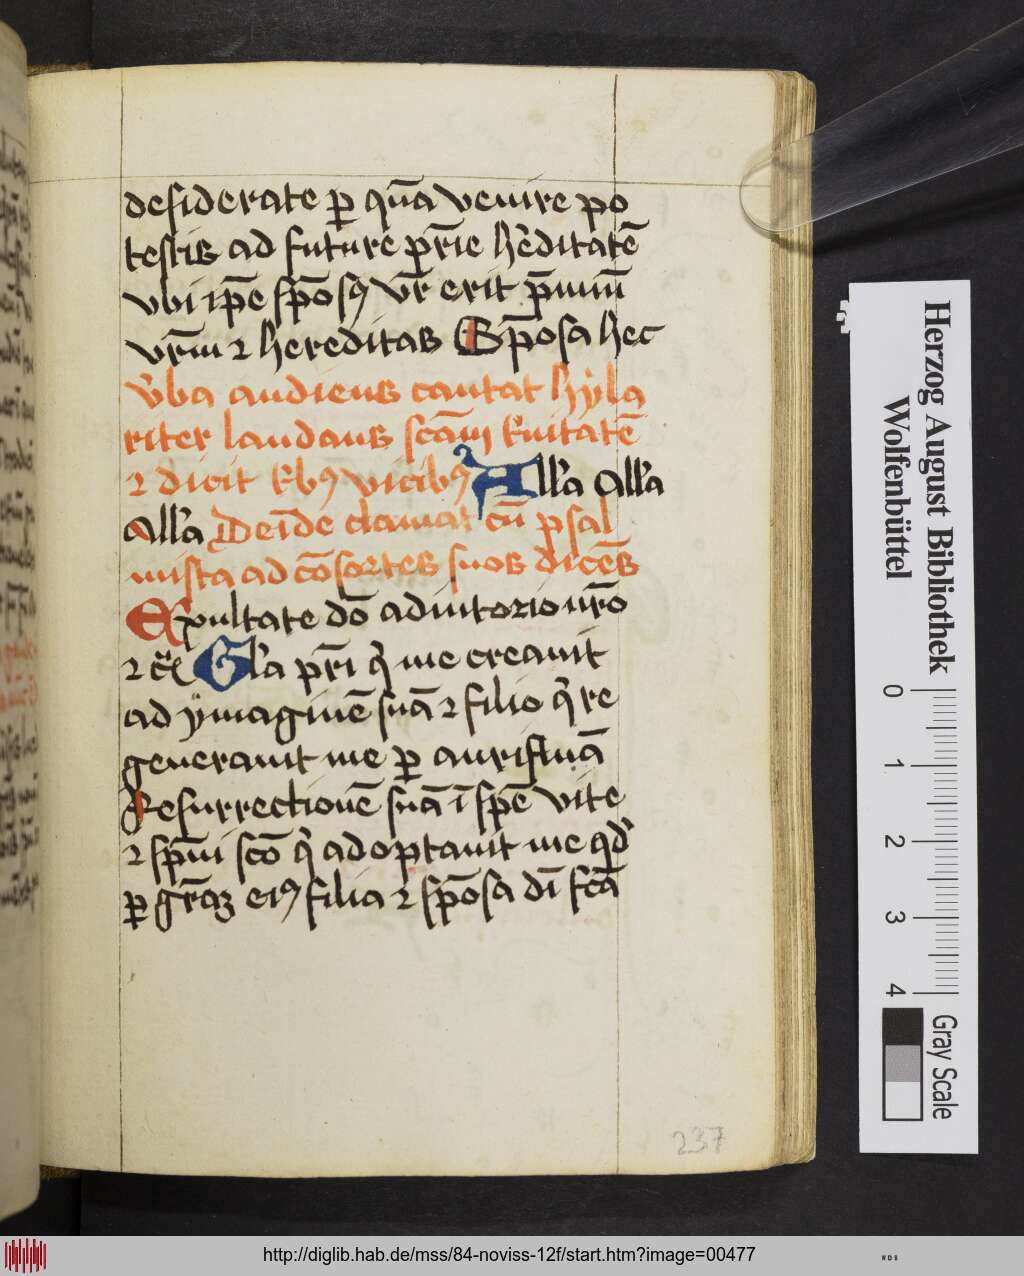 desiderate ꝑ quā venire po
testis ad future pr̄ie hēditatē
vbi ip̄e spōsꝰ vr̄ erit p̄miū
vr̄m ⁊ hereditas Spōsa hec
v̓ba audiens cantat hyla
riter laudans scām t̓nitatē
⁊ dicit t̓bꝰ vicibꝰ All̓a All̓a
All̓a Deīde clamat cū psal
mista ad cōsortes suos dicēs
Exultate dō adiutorio nrō
⁊ cͣ Gl̓a pr̄i q̓ me creauit
ad ymaginē suā ⁊ filio q̓ re
generauit me ꝑ aurifluā
Resurrectionē suā ī spē vite
⁊ spm̄i scō q̓ adoptauit me qd̓
ꝑ gr̄aꝫ eiꝰ filia ⁊ spōsa dī fcā
237
Herzog August Bibliothek
Wolfenbüttel
0 1 2 3 4
Gray Scale
http://diglib.hab.de/mss/84-noviss-12f/start.htm?image=00477